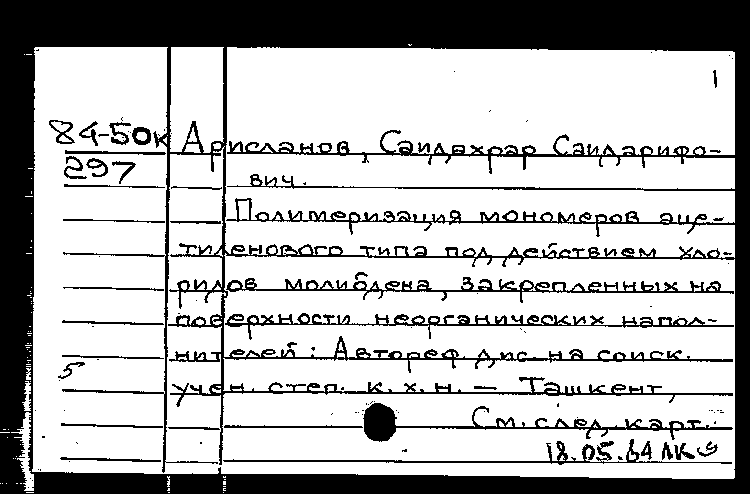 1
84-50к
297
Арисланов, Саидахрар Саидарифо-
вич.
Полимеризация мономеров аце-
тиленового типа под действием хло-
ридов молибдена, закрепленных на
поверхности неорганических напол-
нителей: Автореф. дис. на соиск.
5
учен. степ. к. х. н. — Ташкент,
См. след. карт.
18.05.84 ЛК